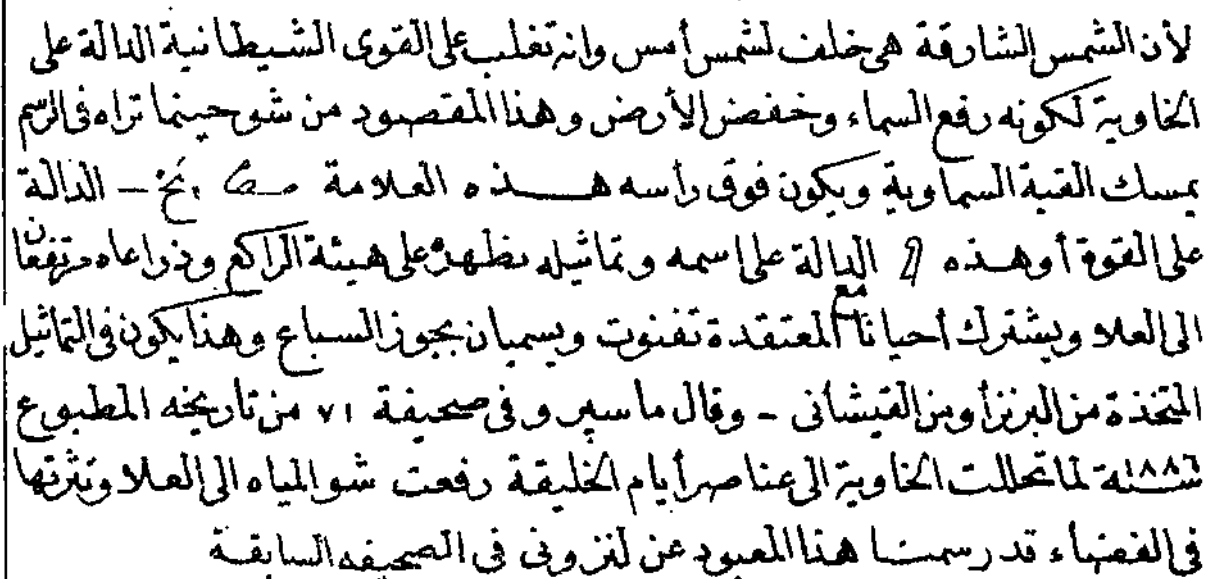 لأن الشمس الشارقة هى خلف لشمس أمس وانه تغلب على القوى الشيطانية الدالة على
الخاوية لكونه رفع السماء وخفض الأرض وهذا المقصود من شو حينما تراه فى الرسم
يمسك القبة السماوية ويكون فوق رأسه هـــذه العلامة نخ - الدالة
على القوة أو هـذه الدالة على اسمه وتماثيله تظهره على هيئة الراكع وذراعاه مرتفعان
الى العلا ويشترك أحيانا مع المعتقدة تفنوت ويسميان بجوز السباع وهذا يكون فى التماثيل
المتخذة من البرنز أو من القيشانى - وقال ماسپرو فى صحيفة ٧١ من تاريخه المطبوع
سنة ١٨٨٦ لما تحللت الخاوية الى عناصر أيام الخليقة رفعت شو المياه الى العلا ونثرتها
فى الفضاء قد رسمنا هذا المعبود عن لنزونى فى الصحيفه السابقة